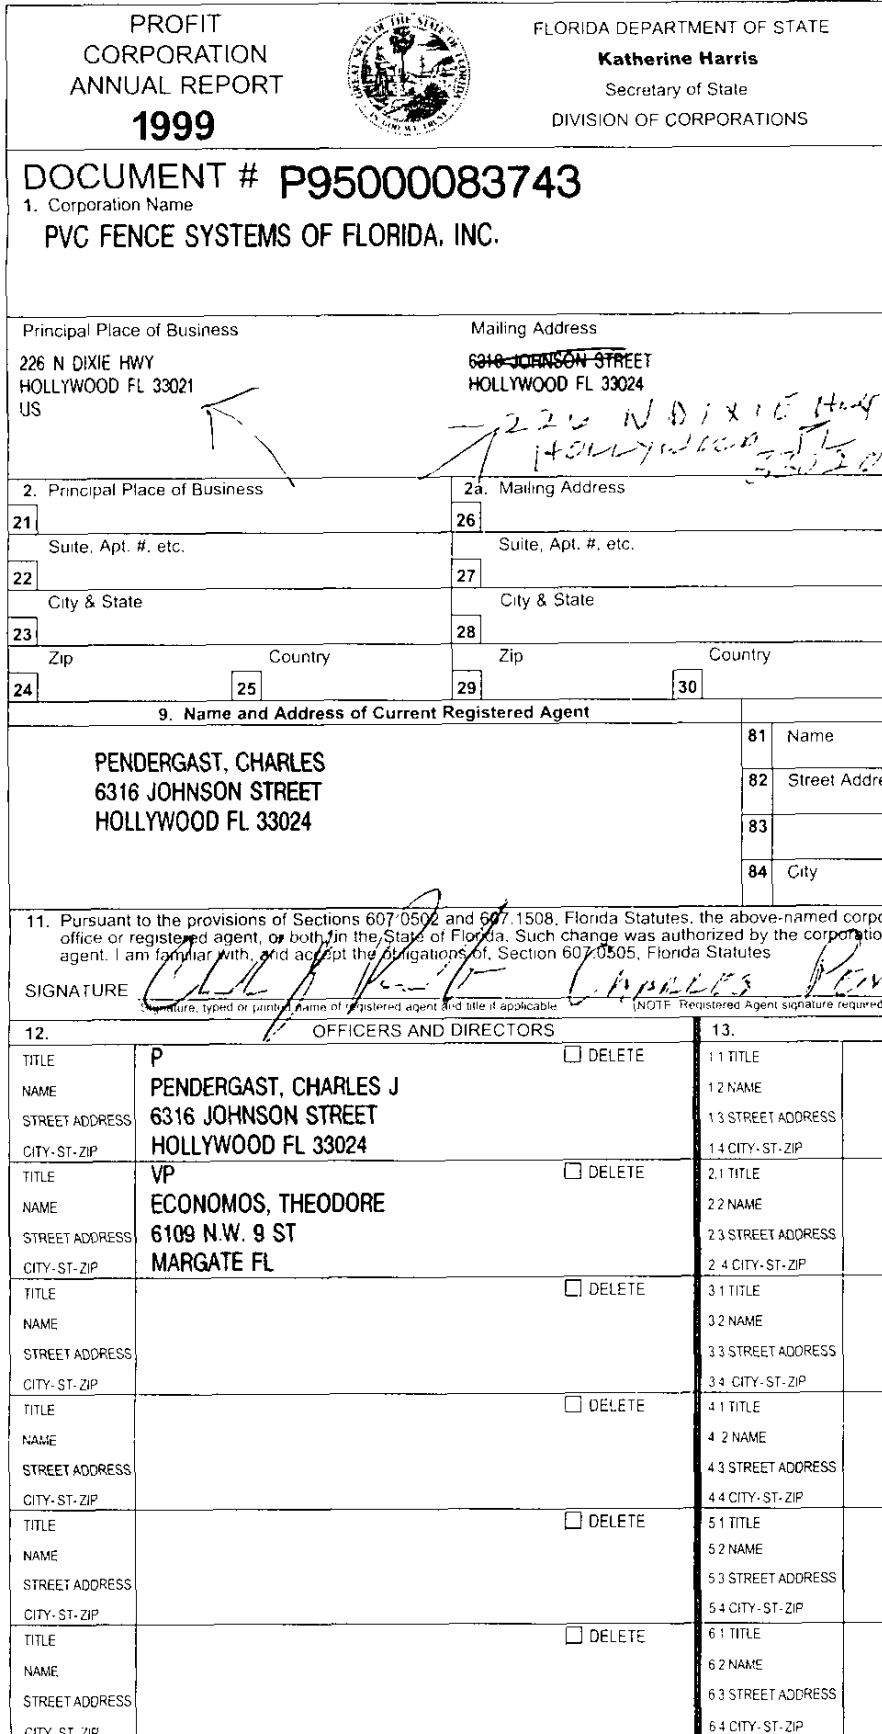 PROFIT
CORPORATION
ANNUAL REPORT
1999
FLORIDA DEPARTMENT OF STATE
Katherine Harris
Secretary of State
DIVISION OF CORPORATIONS
DOCUMENT # P95000083743
1. Corporation Name
PVC FENCE SYSTEMS OF FLORIDA, INC.
Principal Place of Business
Mailing Address
226 N DIXIE HWY
HOLLYWOOD FL 33021
US
6316 JOHNSON STREET
HOLLYWOOD FL 33024
226 N DIXIE HWY
HOLLYWOOD FL
33020
2. Principal Place of Business
2a. Mailing Address
21
26
Suite, Apt. #, etc.
Suite, Apt. #, etc.
22
27
City & State
City & State
23
28
Zip
Country
Zip
Country
24
25
29
30
9. Name and Address of Current Registered Agent
PENDERGAST, CHARLES
6316 JOHNSON STREET
HOLLYWOOD FL 33024
81 Name
82 Street Addre
83
84 City
11. Pursuant to the provisions of Sections 607.0502 and 607.1508, Florida Statutes, the above-named corpo
office or registered agent, or both, in the State of Florida. Such change was authorized by the corporatio
agent. I am familiar with, and accept the obligations of, Section 607.0505, Florida Statutes
SIGNATURE
CHARLES PEN
Signature, typed or printed name of registered agent and title if applicable
(NOTE Registered Agent signature required
12. OFFICERS AND DIRECTORS
13.
TITLE P DELETE
NAME PENDERGAST, CHARLES J
STREET ADDRESS 6316 JOHNSON STREET
CITY-ST-ZIP HOLLYWOOD FL 33024
1 1 TITLE
1 2 NAME
1 3 STREET ADDRESS
1 4 CITY-ST-ZIP
TITLE VP DELETE
NAME ECONOMOS, THEODORE
STREET ADDRESS 6109 N.W. 9 ST
CITY-ST-ZIP MARGATE FL
2.1 TITLE
2 2 NAME
2 3 STREET ADDRESS
2 4 CITY-ST-ZIP
TITLE DELETE
NAME
STREET ADDRESS
CITY-ST-ZIP
3 1 TITLE
3 2 NAME
3 3 STREET ADDRESS
3 4 CITY-ST-ZIP
TITLE DELETE
NAME
STREET ADDRESS
CITY-ST-ZIP
4 1 TITLE
4 2 NAME
4 3 STREET ADDRESS
4 4 CITY-ST-ZIP
TITLE DELETE
NAME
STREET ADDRESS
CITY-ST-ZIP
5 1 TITLE
5 2 NAME
5 3 STREET ADDRESS
5 4 CITY-ST-ZIP
TITLE DELETE
NAME
STREET ADDRESS
CITY ST ZIP
6 1 TITLE
6 2 NAME
6 3 STREET ADDRESS
6 4 CITY-ST-ZIP